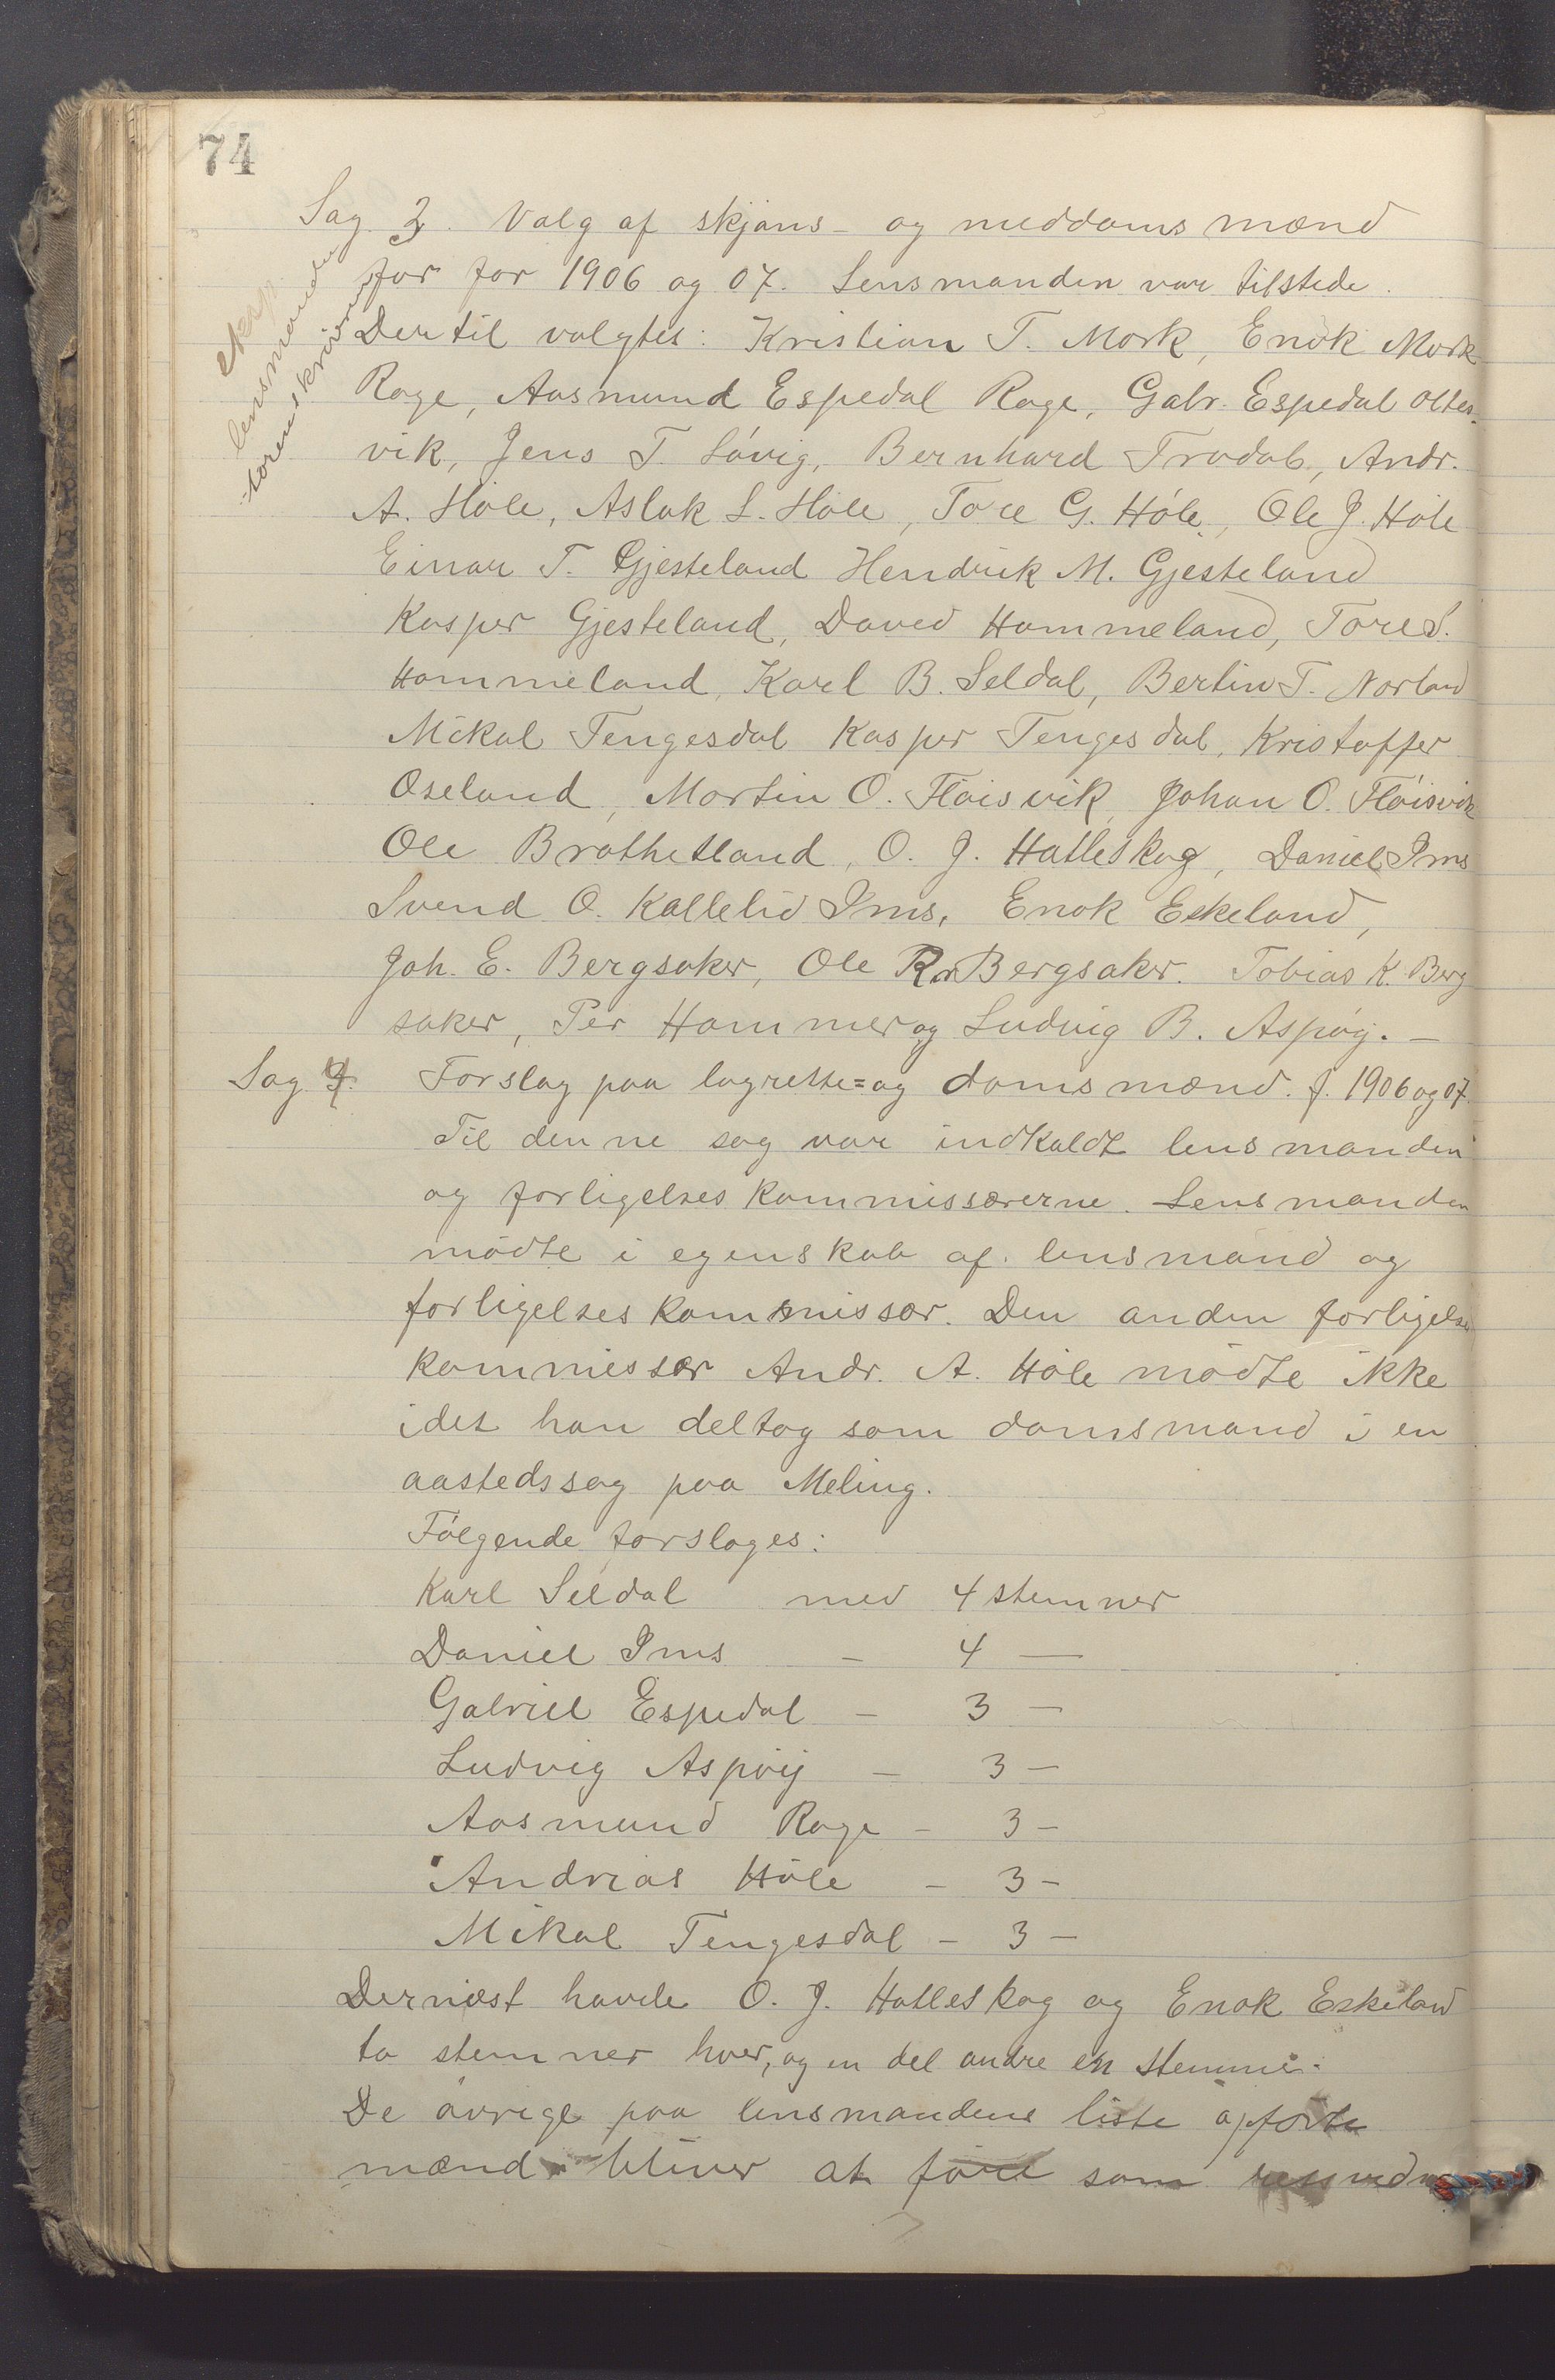 74
Sag 3. Valg af skjøns- og meddomsmænd
for for 1906 og 07. Lensmanden var tilstede.
eksp
lensmanden
sorenskriver
Dertil valgtes: Kristian T. Mork, Enok Mork
Rage, Aasmund Espedal Rage, Gabr. Espedal Oltes-
vik, Jens T. Lövig, Bernhard Trodal, Andr.
A. Höle, Aslak L. Höle, Tore G. Höle, Ole J. Höle
Einar T. Gjesteland Hendrik M. Gjesteland
Kasper Gjesteland, David Hommeland, Tore S.
Hommeland, Karl B. Seldal, Bertin T. Norland
Mikal Tengesdal Kasper Tengesdal, Kristoffer
Oseland, Martin O. Flöisvik, Johan O. Flöisvik
Ole Brathetland, O. J. Hatleskog, Daniel Ims
Svend O. Kallelid Ims, Enok Eskeland,
Joh. E. Bergsaker, Ole R. Bergsaker. Tobias K. Berg
saker, Per Hammer og Ludvig B. Aspöy. —
Sag 4. Forslag paa lagrette= og domsmænd. f. 1906 og 07.
Til denne sag var indkaldt lensmanden
og forligelseskommissærerne. Lensmanden
mödte i egenskab af lensmand og
forligelseskommissær. Den anden forligelses
kommissær Andr. A. Höle mödte ikke
idet han deltog som domsmand i en
aastedssag paa Meling.
Fölgende forslages:
Karl Seldal med 4 stemner
Daniel Ims – 4 —
Gabriel Espedal – 3 —
Ludvig Aspöy – 3 —
Aasmund Rage – 3 –
Andreas Höle – 3 –
Mikal Tengesdal – 3 –
Dernæst havde O. J. Hatleskog og Enok Eskeland
to stemner hver, og en del andre en stemme.
De övrige paa lensmandens liste opförte
mænd bliver at före som